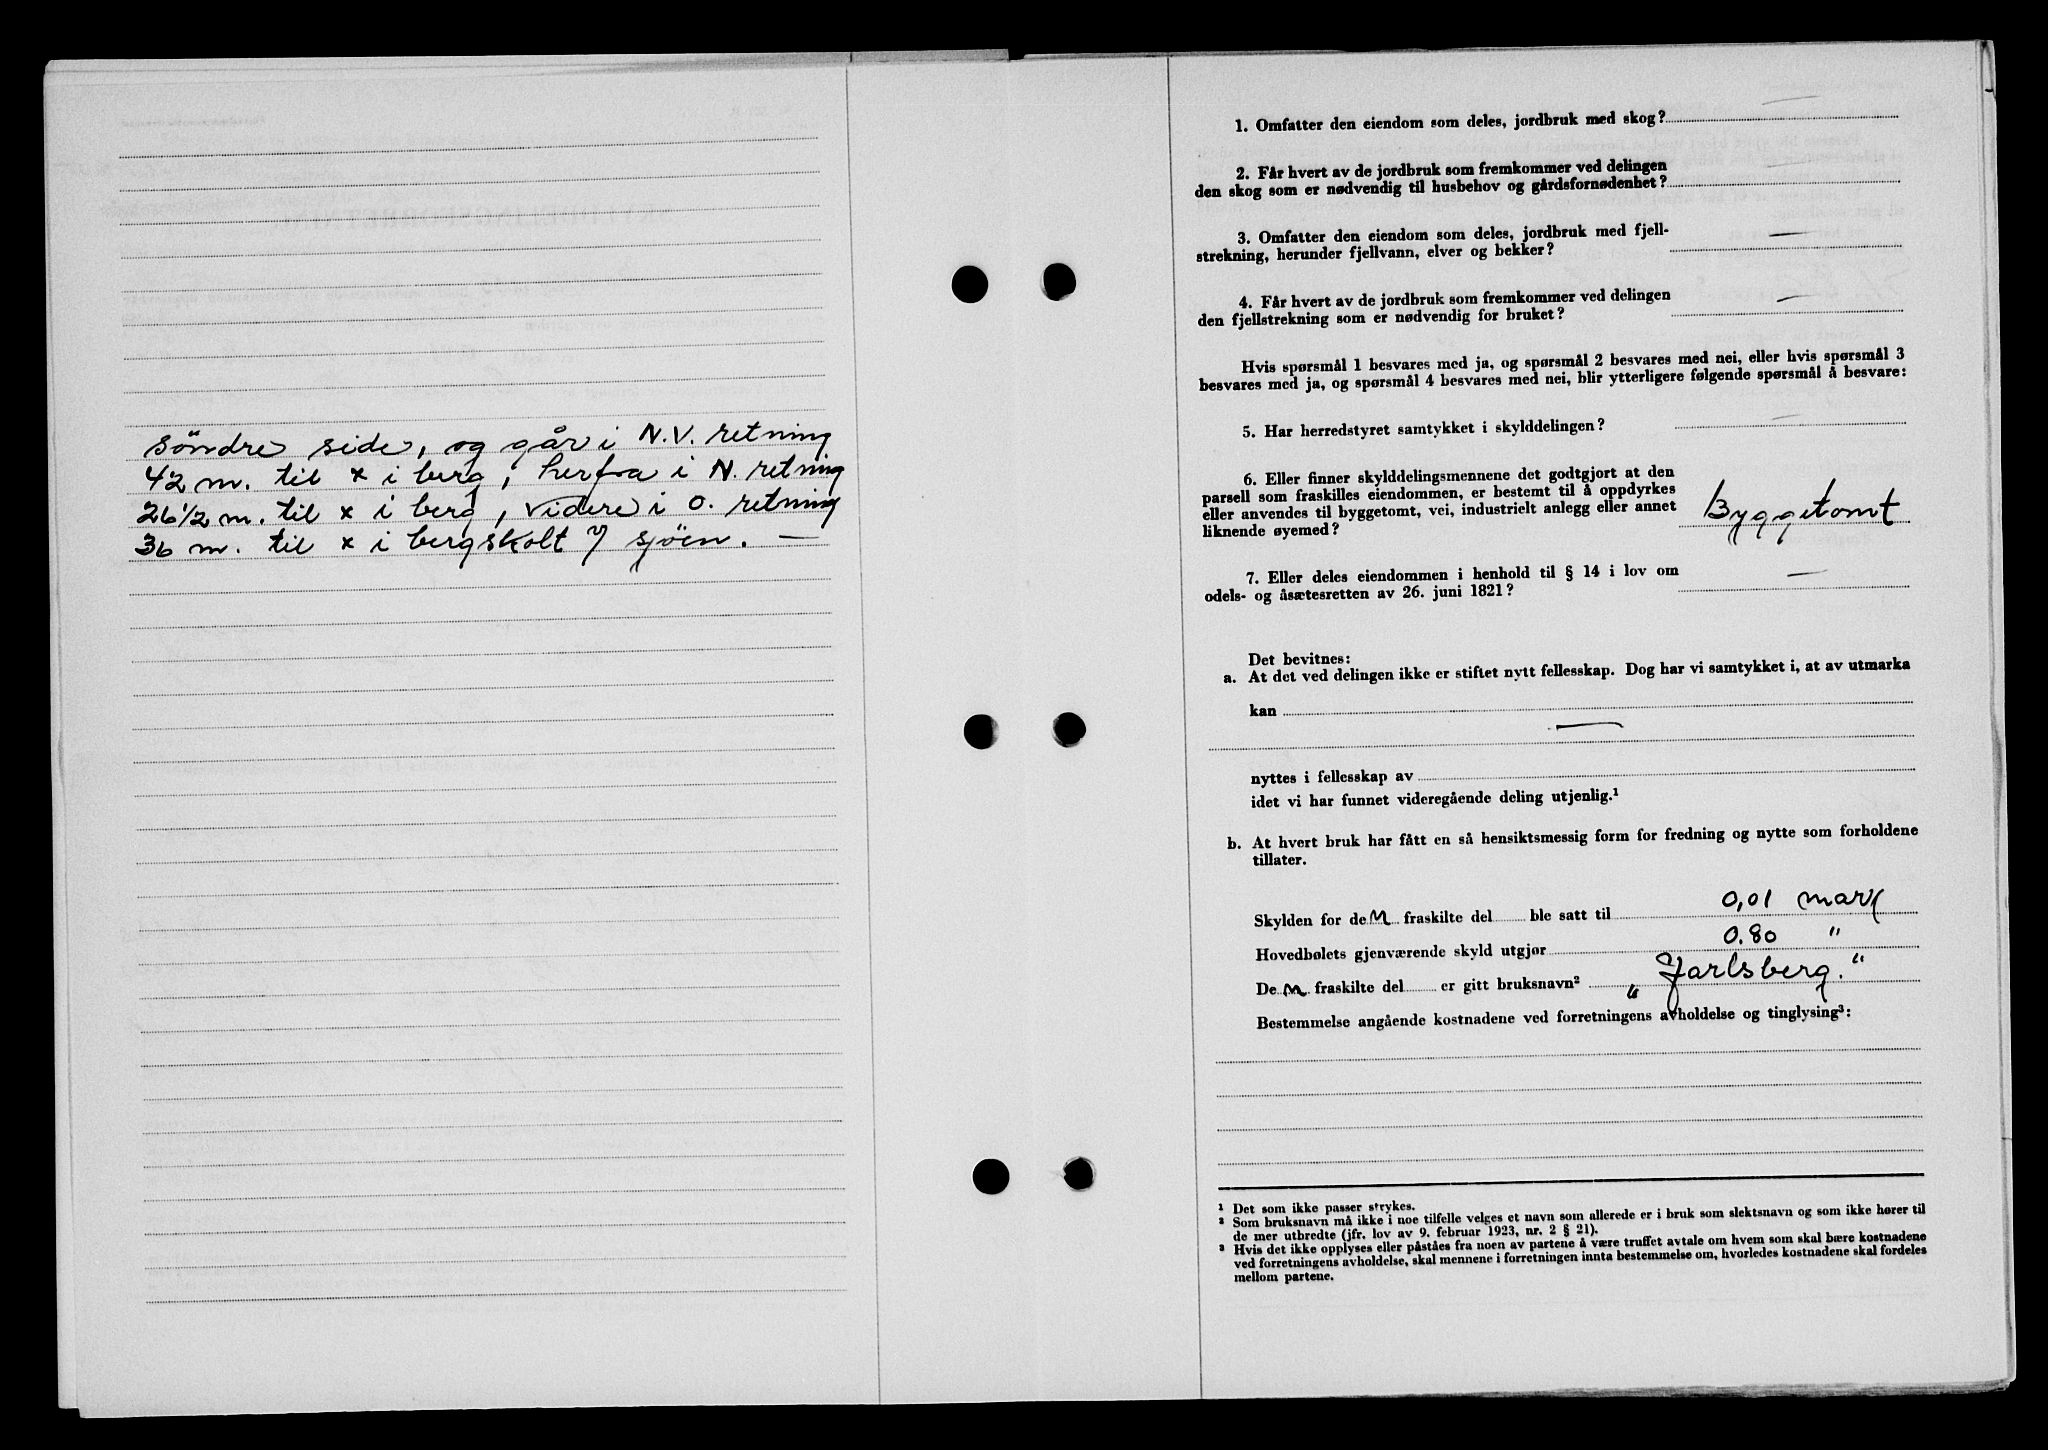 söndre side, og går i N.V. retning
42 m. til x i berg, herfra i N. retning
26 1/2 m. til x i berg, videre i O. retning
36 m. til x i bergskolt v/ sjöen. —
1. Omfatter den eiendom som deles, jordbruk med skog? —
2. Får hvert av de jordbruk som fremkommer ved delingen
den skog som er nødvendig til husbehov og gårdsfornødenhet? —
3. Omfatter den eiendom som deles, jordbruk med fjell-
strekning, herunder fjellvann, elver og bekker? —
4. Får hvert av de jordbruk som fremkommer ved delingen
den fjellstrekning som er nødvendig for bruket? —
Hvis spørsmål 1 besvares med ja, og spørsmål 2 besvares med nei, eller hvis spørsmål 3
besvares med ja, og spørsmål 4 besvares med nei, blir ytterligere følgende spørsmål å besvare:
5. Har herredstyret samtykket i skylddelingen? —
6. Eller finner skylddelingsmennene det godtgjort at den
parsell som fraskilles eiendommen, er bestemt til å oppdyrkes
eller anvendes til byggetomt, vei, industrielt anlegg eller annet
liknende øyemed? Byggetomt
7. Eller deles eiendommen i henhold til § 14 i lov om
odels- og åsætesretten av 26. juni 1821? —
Det bevitnes:
a. At det ved delingen ikke er stiftet nytt fellesskap. Dog har vi samtykket i, at av utmarka
kan
—
nyttes i fellesskap av
idet vi har funnet videregående deling utjenlig.¹
b. At hvert bruk har fått en så hensiktsmessig form for fredning og nytte som forholdene
tillater.
Skylden for den fraskilte del ble satt til 0,01 mark
Hovedbølets gjenværende skyld utgjør 0.80 "
Den fraskilte del er gitt bruksnavn² „Jarlsberg.“
Bestemmelse angående kostnadene ved forretningens avholdelse og tinglysing³:
¹ Det som ikke passer strykes.
² Som bruksnavn må ikke i noe tilfelle velges et navn som allerede er i bruk som slektsnavn og som ikke hører til
de mer utbredte (jfr. lov av 9. februar 1923, nr. 2 § 21).
³ Hvis det ikke opplyses eller påståes fra noen av partene å være truffet avtale om hvem som skal bære kostnadene
ved forretningens avholdelse, skal mennene i forretningen innta bestemmelse om, hvorledes kostnadene skal fordeles
mellom partene.